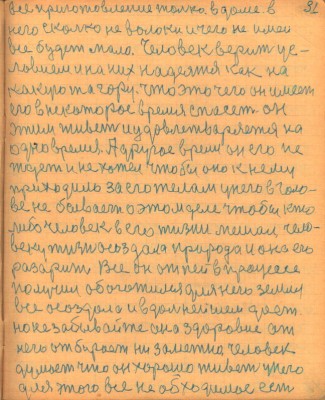 31
все приготовление только в доме. в
него сколко не волоки и чего не имей
все будет мало. Человек верит ус-
ловием и на них надеятся как на
какуюто гору. Что это чего он имеет
его в некоторое время спасет он
этим живет и удовлетваряется на
одно время. А другое время он его не
ждет и не хотел чтобы оно к нему
приходило за его телам у него в голо-
ве не бывает о этом деле чтобы кто
либо человек в его жизни мешал чело-
веку жизнь создала природа и она его
разарит. Все он от ней в процессе
получил обогатился для него земля
все создала и в дальнейшем дает
но не забывайте она здоровие от
него отбирает ни заметна человек
думает что он хорошо живет у него
для этого все не обходимое есть